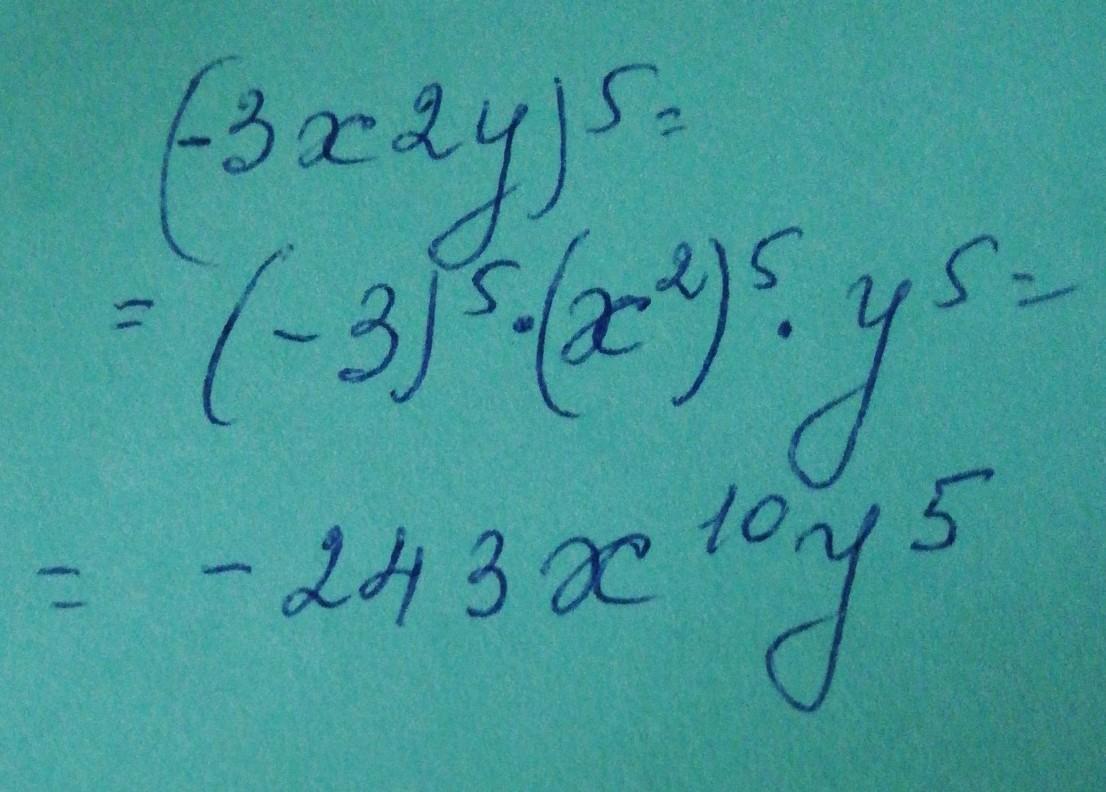 (-3x2y)⁵=
= (-3)⁵·(x²)⁵·y⁵=
= -243x¹⁰y⁵